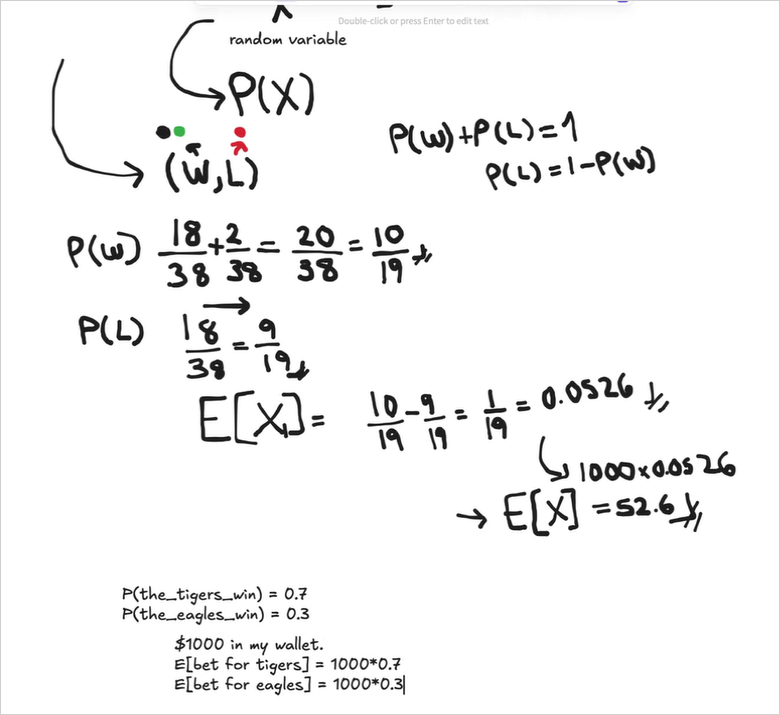 Double-click or press Enter to edit text
random variable
P(X)
(W,L)
P(W)+P(L)=1
P(L)=1-P(W)
P(W) 18/38+2/38=20/38=10/19
P(L) 18/38=9/19
E[X]= 10/19-9/19=1/19=0.0526
1000×0.0526
→ E[X]=52.6
P(the_tigers_win) = 0.7
P(the_eagles_win) = 0.3
$1000 in my wallet.
E[bet for tigers] = 1000*0.7
E[bet for eagles] = 1000*0.3